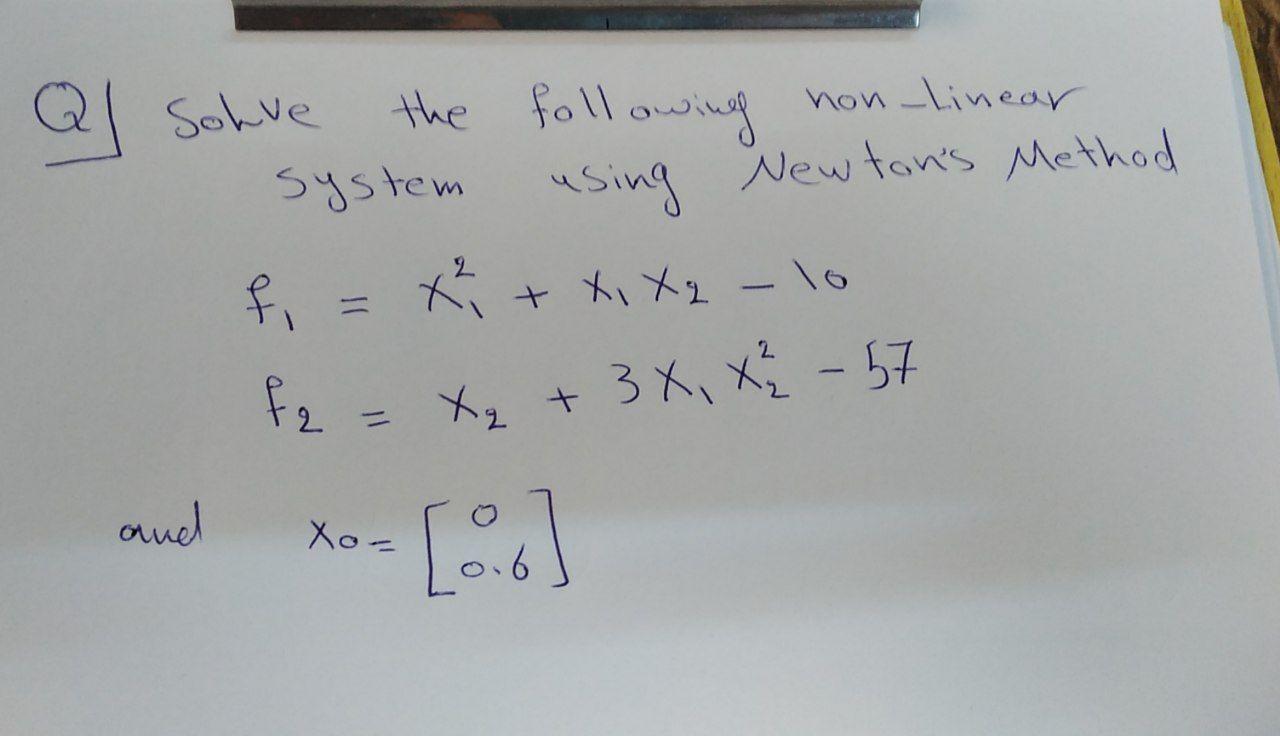 Q| Solve the following non-Linear
system using Newton's Method
f₁ = x₁² + x₁ x₂ - 10
f₂ = x₂ + 3 x₁ x₂² - 57
and x₀ = [0
0.6]